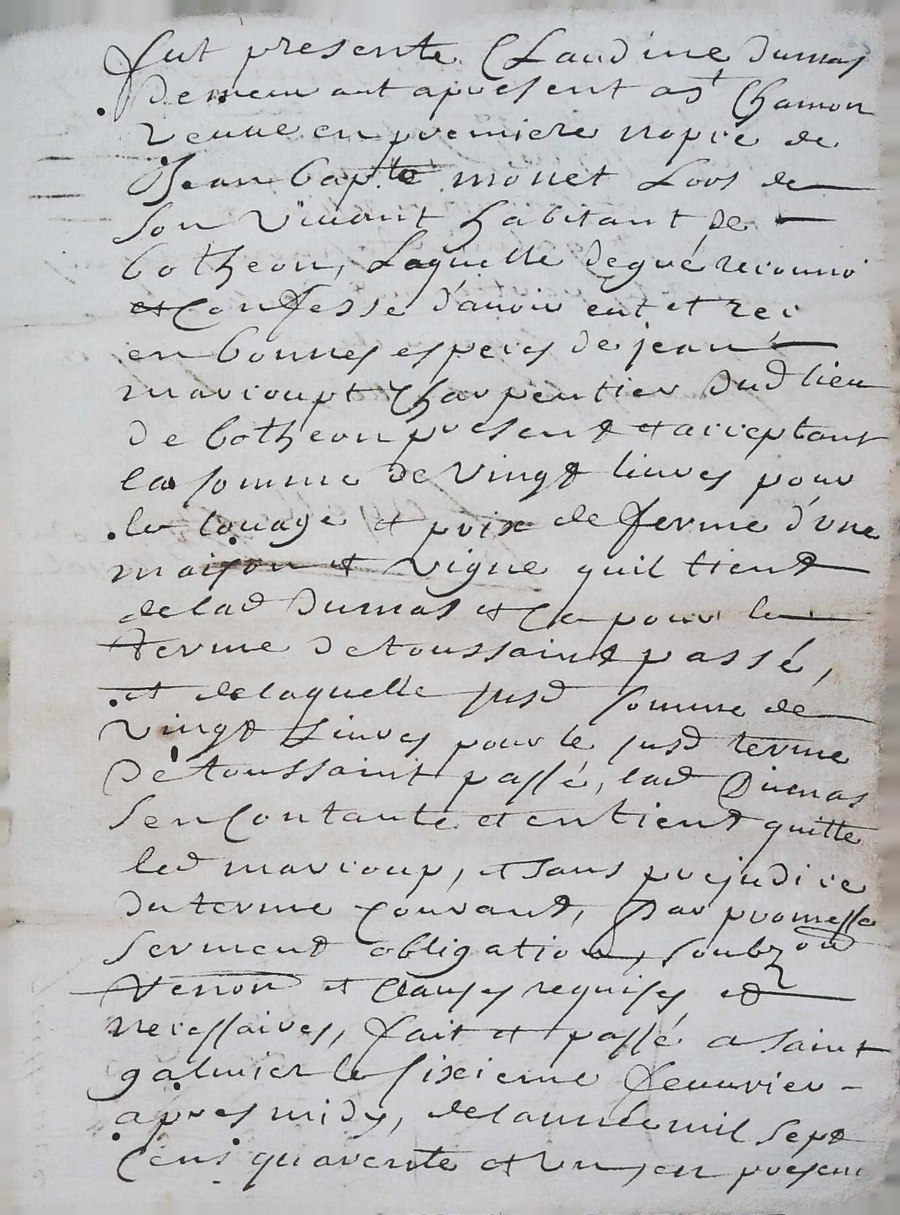 fut presente Claudine Dumas
Demeurant apresent a st Chamon
veuve en premiere nopce de
Jean bapte monet Lors de
son vivant habitant de
botheon, Laquelle de gré reconnoi
et Confesse d'avoir eut et rec
en bonnes especes de jean
marcoupt Charpentier dud lieu
de botheon present et acceptant
la somme de vingt livres pour
le louage et prix de ferme d'une
maison et vigne quil tient
de lad Dumas et Ce pour le
terme de toussaint passé,
et de laquelle susd somme de
vingt Livres pour le susd terme
De toussaint passé, lad Dumas
sen Contante et en tient quitte
led marcoup, et sans prejudice
du terme Courant, Par promesse
serment obligation, soubz
et Clauses requises et
necessaires, fait et passé a saint
galmier le sixieme fevvrier
apres midy, de lannée mil sept
Cens quarente et un, en presen